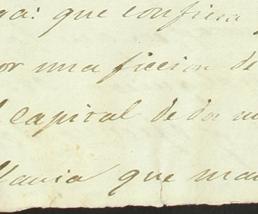 ga: que confiesa
or una ficcion de
l capital de dos m
llavia que ma